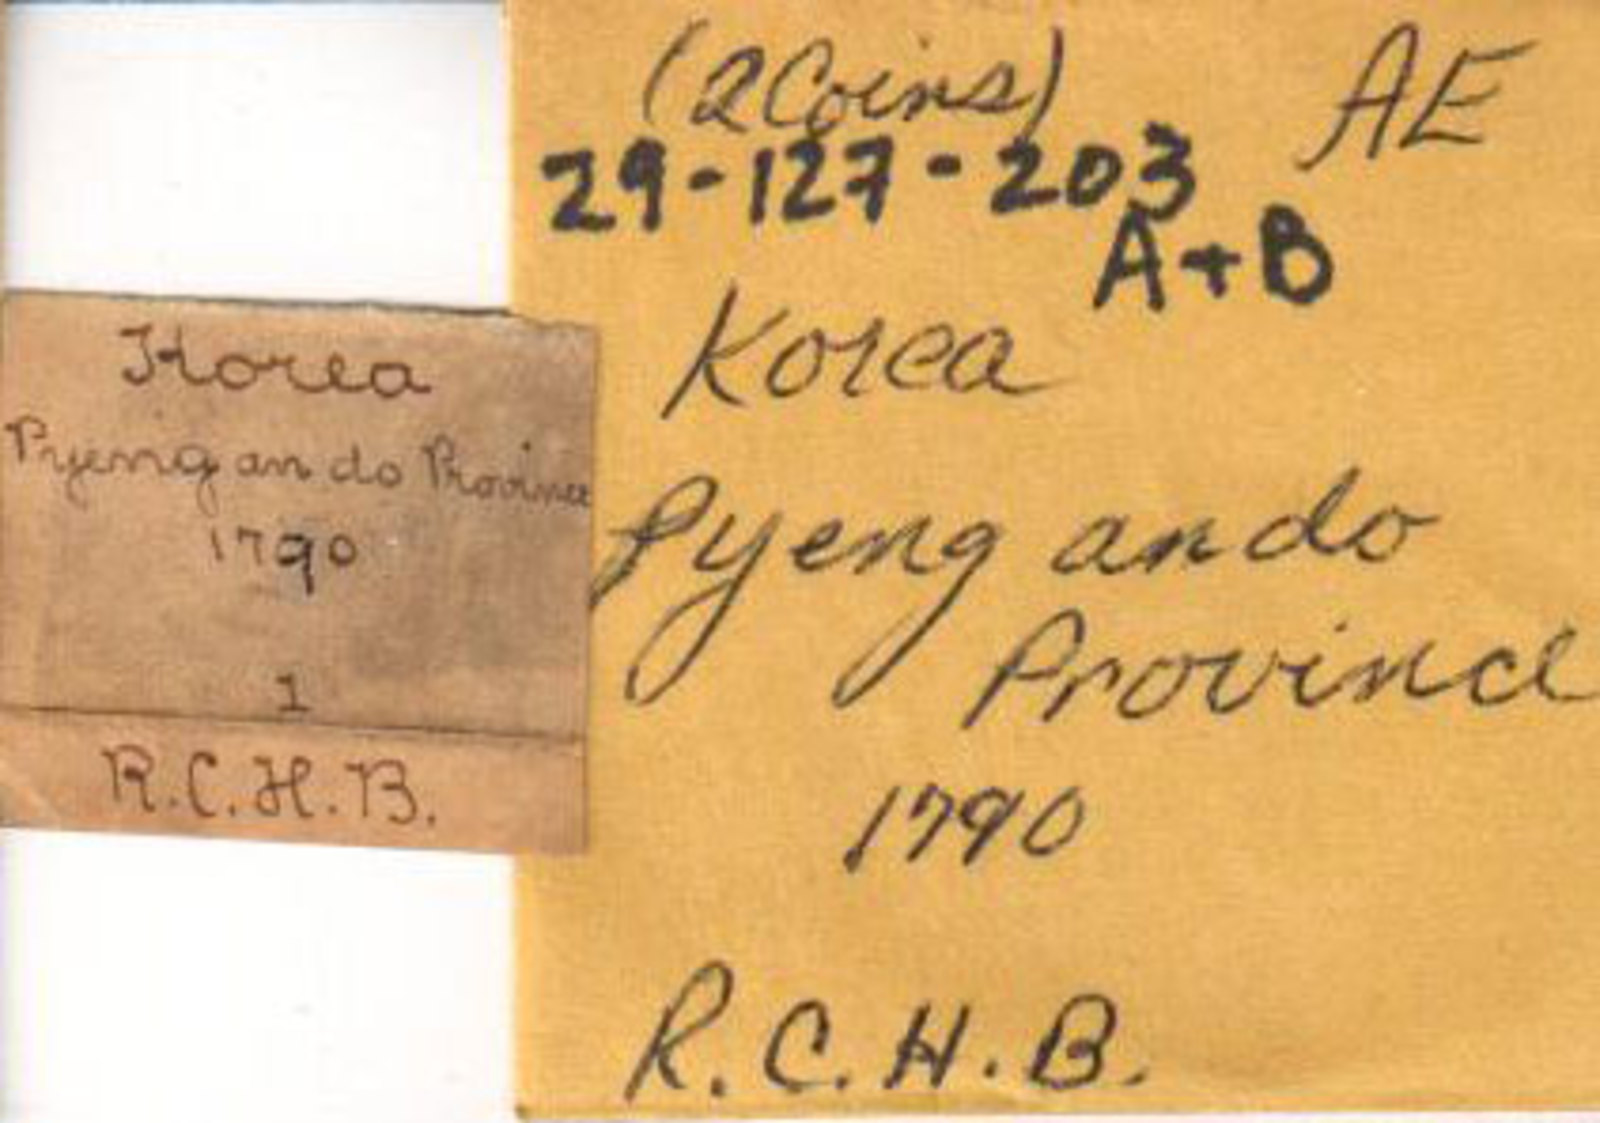 Korea
Pyeng an do Province
1790
1
R.C.H.B.
(2 Coins)
AE
29-127-203
A+B
Korea
Pyeng an do
Province
1790
R.C.H.B.